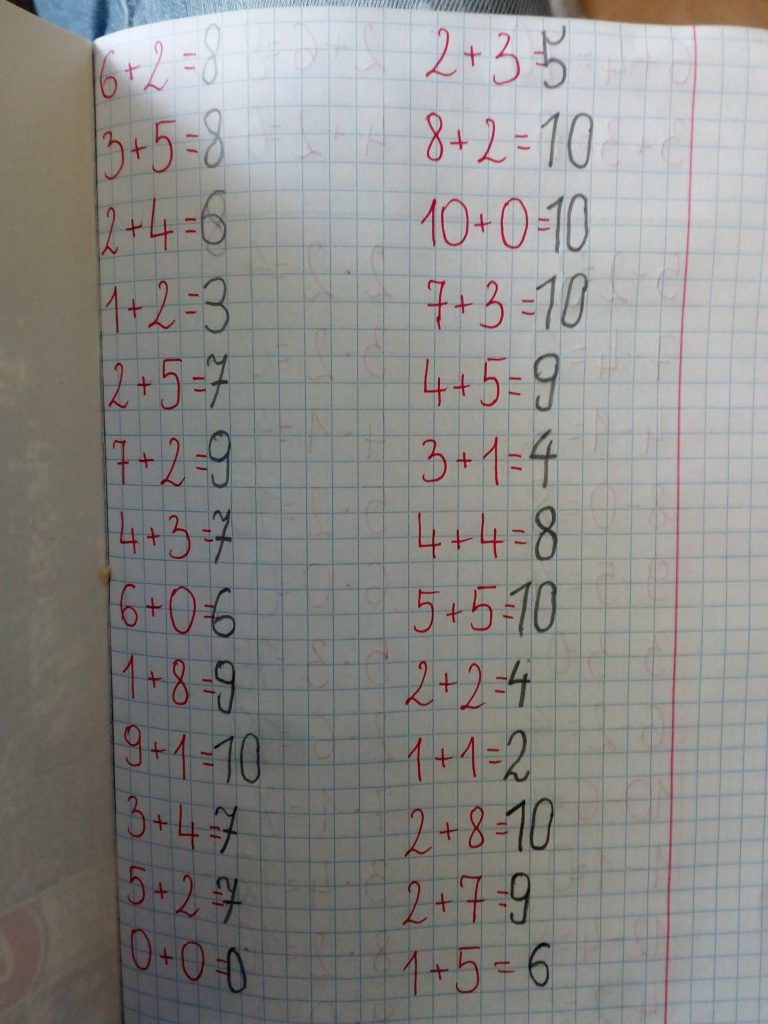 6+2=8 2+3=5
3+5=8 8+2=10
2+4=6 10+0=10
1+2=3 7+3=10
2+5=7 4+5=9
7+2=9 3+1=4
4+3=7 4+4=8
6+0=6 5+5=10
1+8=9 2+2=4
9+1=10 1+1=2
3+4=7 2+8=10
5+2=7 2+7=9
0+0=0 1+5=6